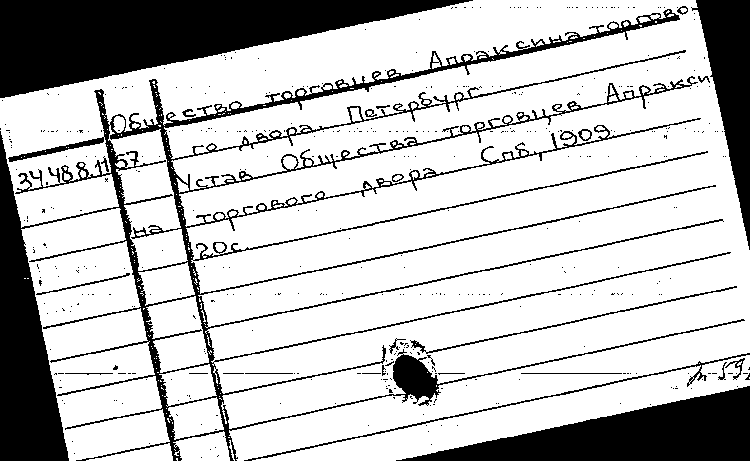 Общество торговцев Апраксина торгово-
го двора. Петербург
34.48.8.1157.
Устав Общества торговцев Апракси-
на торгового двора. Спб., 1909
20с.